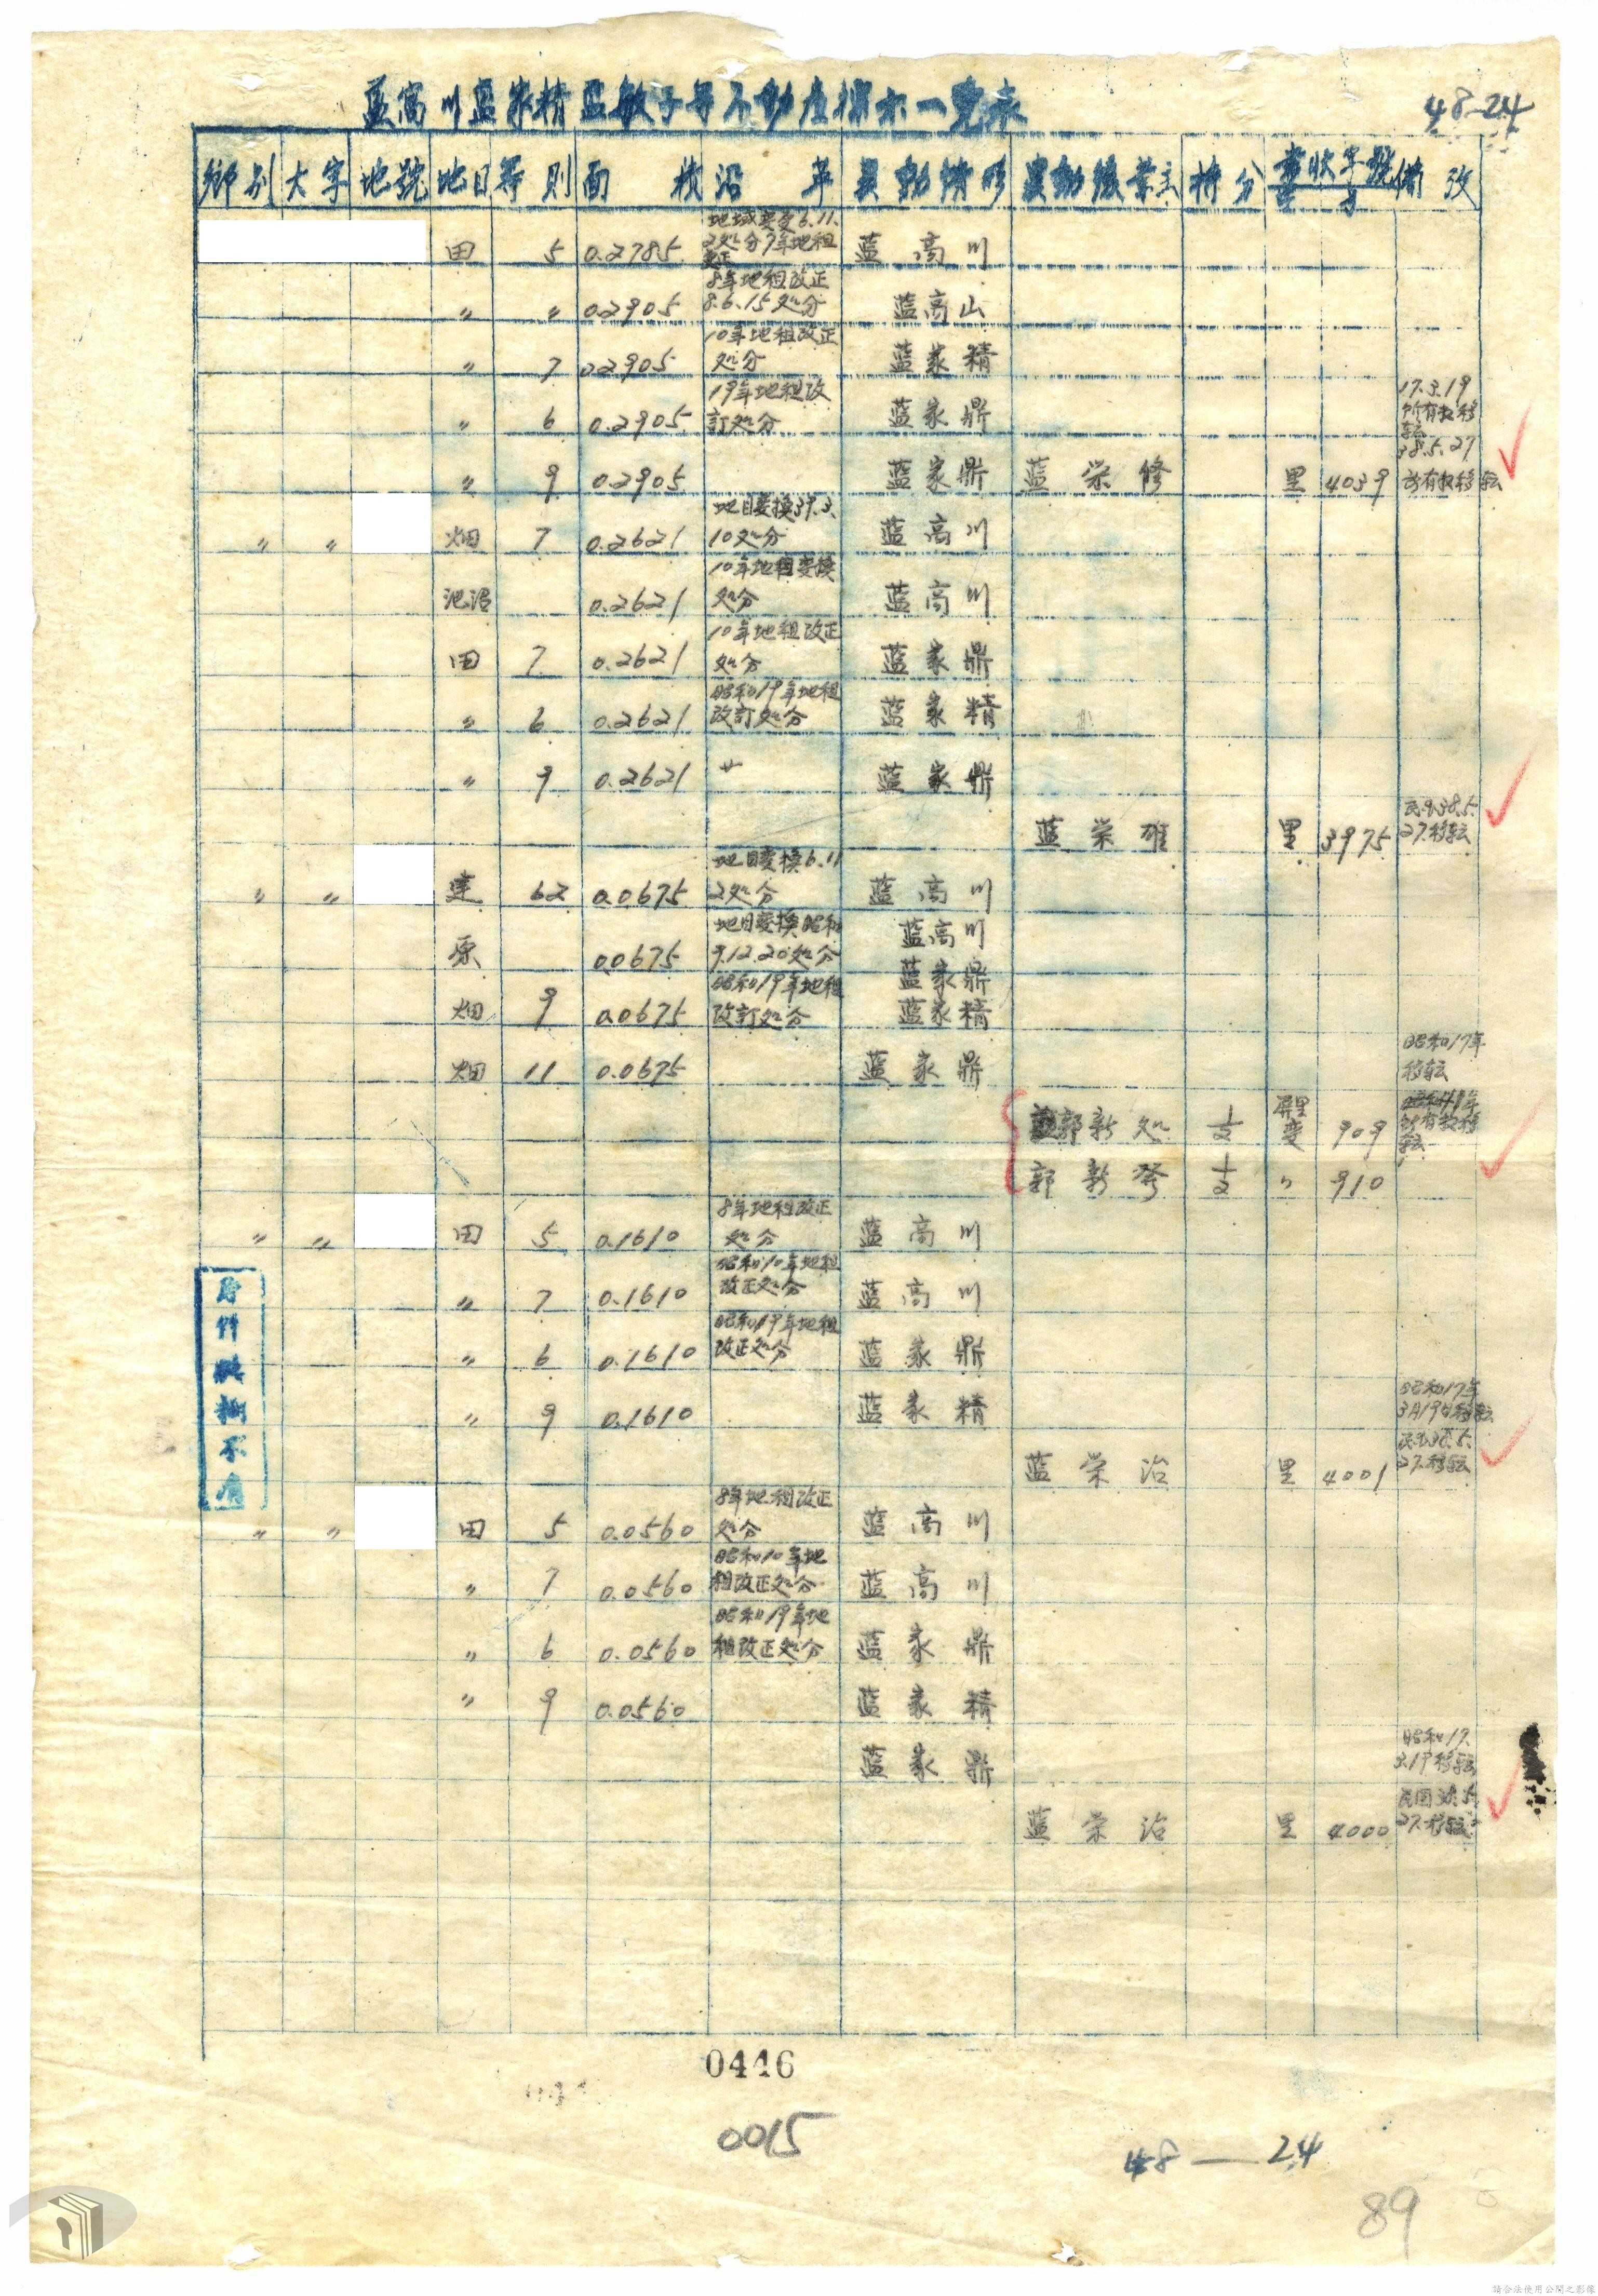 藍高川藍家精藍敏子等不動產標示一覽表
48-24
鄉別 大字 地號 地目 等則 面積 沿革 異動情形 異動後業主 持分 書狀字號 備改
地域変更6.11.
田 5 0.2785 2処分7年地租 藍高川
更正
8年地租改正
〃 〃 0.2905 8.6.15処分 藍高山
10年地租改正
〃 7 0.2905 処分 藍家精
19年地租改 17.3.19
〃 6 0.2905 訂処分 藍家鼎 所有权移
転
38.5.27
〃 9 0.2905 藍家鼎 藍榮修 里 4039 所有权移転
地目変換39.3.
〃 〃 畑 7 0.2621 10処分 藍高川
10年地租変換
池沼 0.2621 処分 藍高川
10年地租改正
田 7 0.2621 処分 藍家鼎
昭和19年地租
〃 6 0.2621 改訂処分 藍家精
〃 9 0.2621 〃 藍家鼎
民国38.5.
藍榮雄 里 3975 27.移転
地目変換6.11
〃 〃 建 62 0.0675 2処分 藍高川
地目変換昭和 藍高川
原 0.0675 9.12.20処分
藍家鼎
昭和19年地租
畑 9 0.0675 改訂処分 藍家精
昭和17年
畑 11 0.0675 藍家鼎 移転
郭新処 1/2 屏里変 909 所有权移転
郭新發 1/2 〃 910
8年地租改正
〃 〃 田 5 0.1610 処分 藍高川
昭和10年地租
〃 7 0.1610 改正処分 藍高川
昭和19年地租
〃 6 0.1610 改正処分 藍家鼎
昭和17年
〃 9 0.1610 藍家精 3月19日移転
民国38.5.
藍榮治 里 4001 27.移転
原件模糊不清
8年地租改正
〃 〃 田 5 0.0560 処分 藍高川
昭和10年地
〃 7 0.0560 租改正処分 藍高川
昭和19年地
〃 6 0.0560 租改正処分 藍家鼎
〃 9 0.0560 藍家精
昭和17.
藍家鼎 3.19移転
民国38.5.
藍榮治 里 4000 27.移転
0446
0015
48—24
89
請合法使用公開之影像